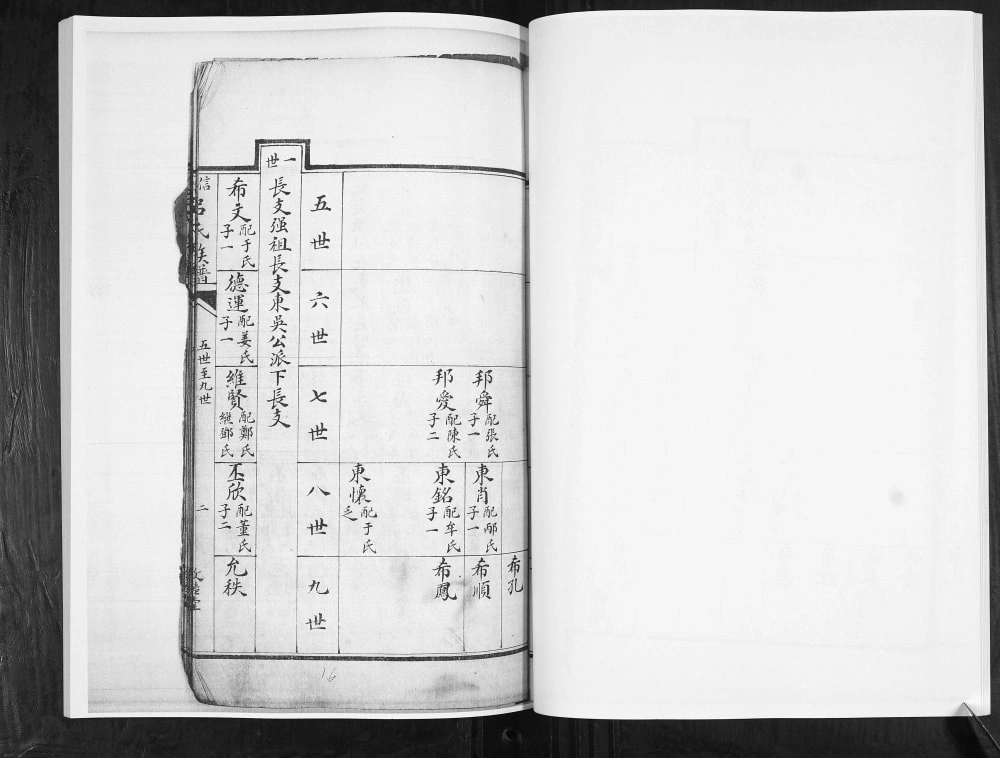 布孔
邦舜 配張氏 子一
東肖 配邴氏 子一
希順
邦愛 配陳氏 子二
東銘 配牟氏 子一
希鳳
東懷 配于氏 乏
五世
六世
七世
八世
九世
一世
長支强祖長支東吳公派下長支
希文 配于氏 子一
德運 配姜氏 子一
維賢 配鄭氏 繼鄧氏
丕欣 配董氏 子二
允秩
信
呂氏族譜
五世至九世
二
16